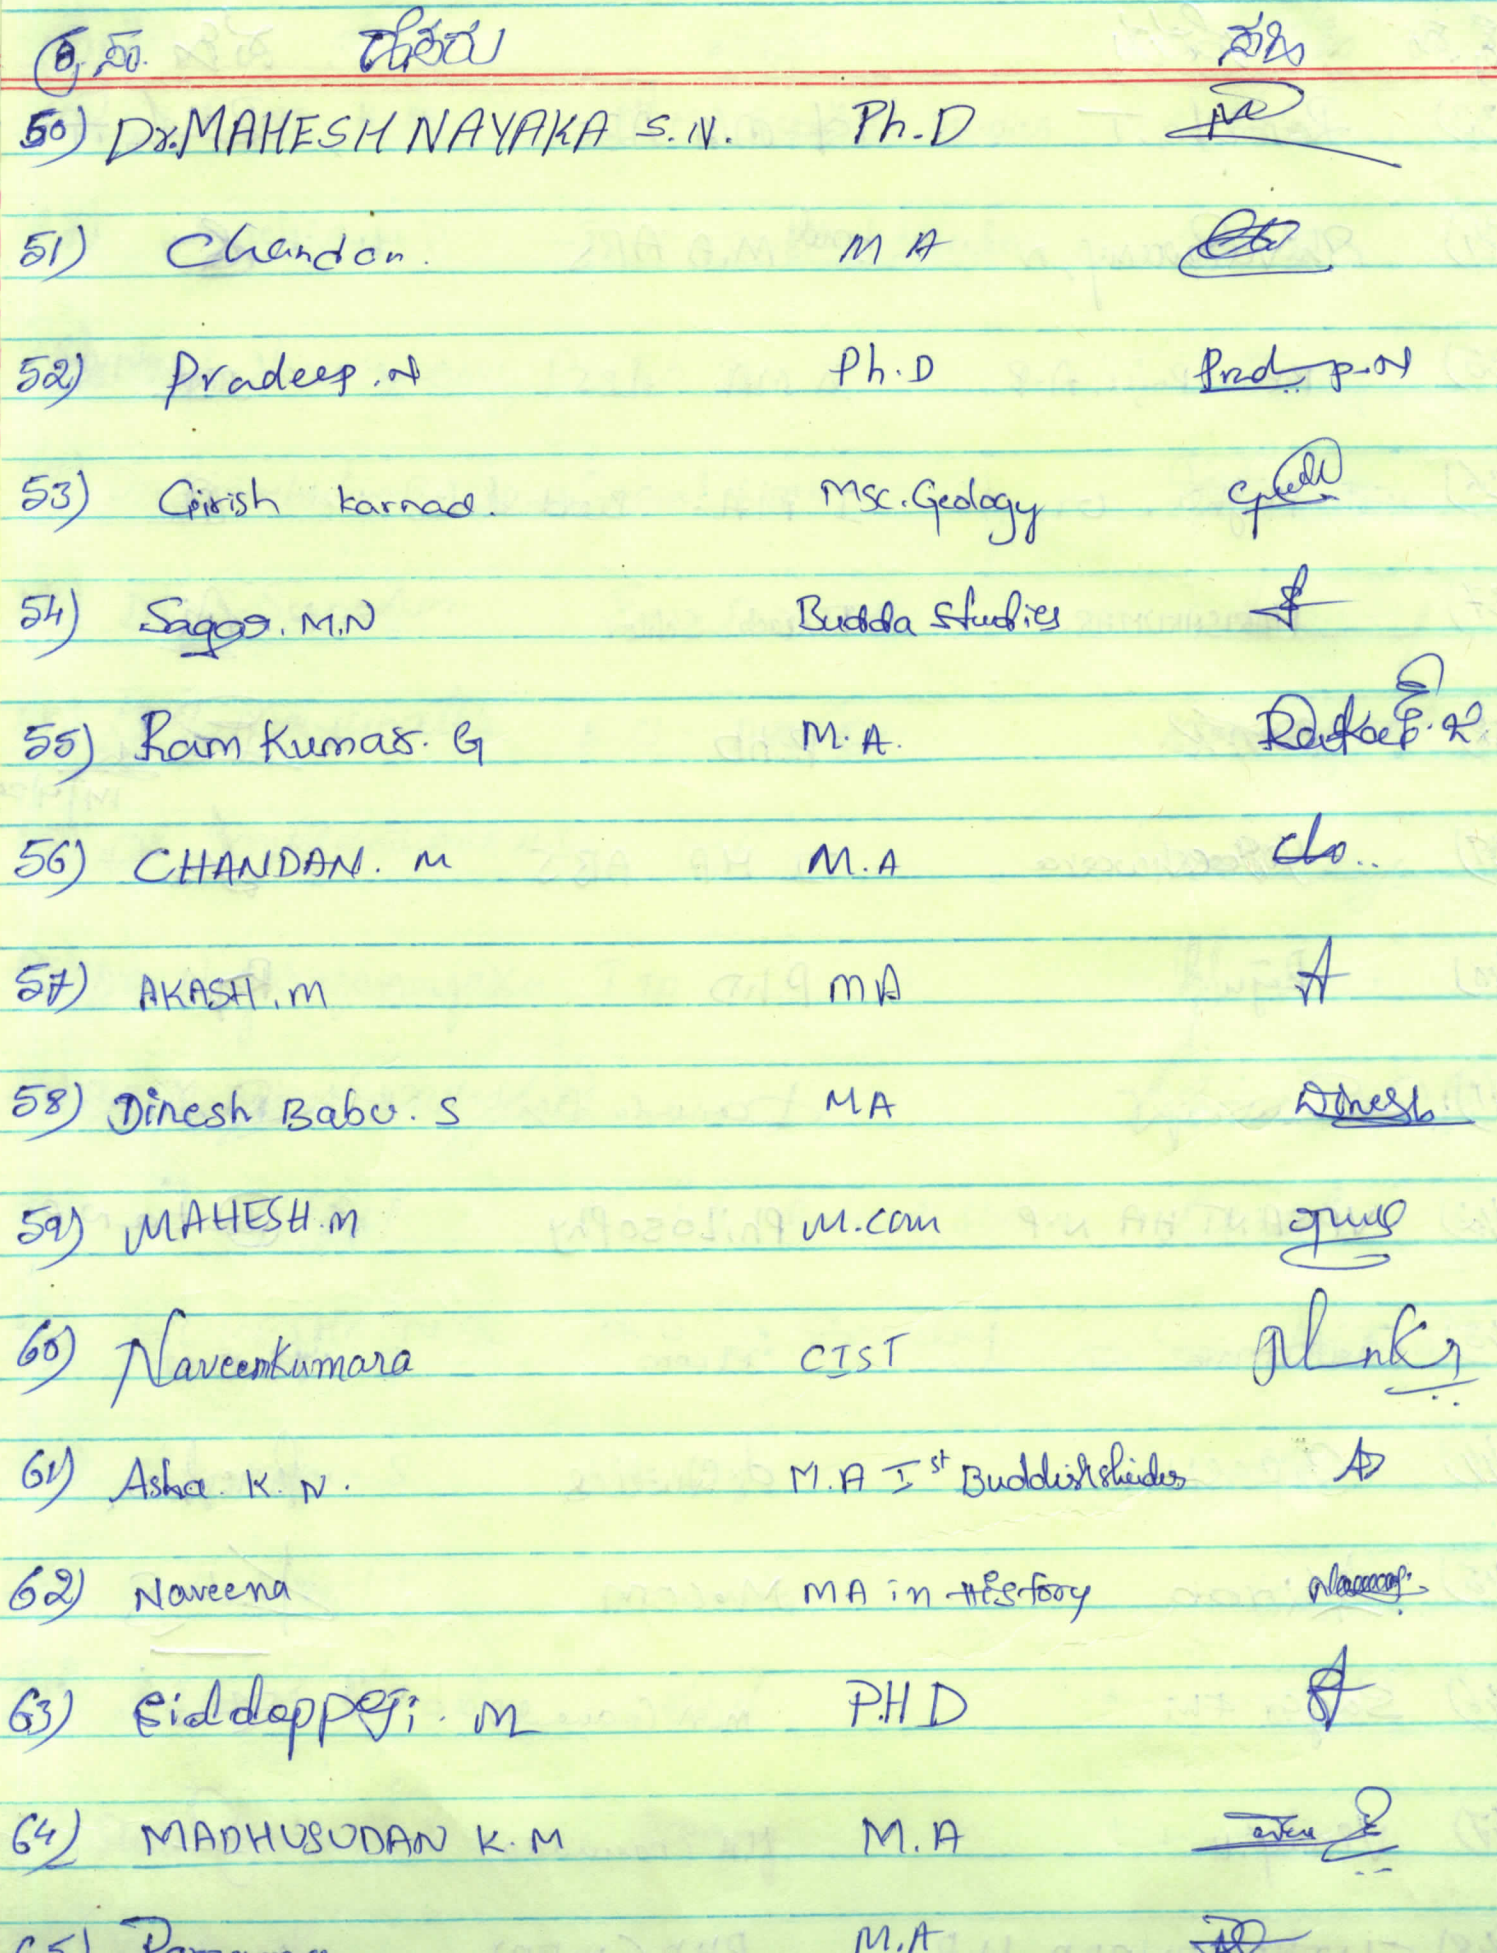 ಕ್ರ.ಸಂ. ಹೆಸರು ಸಹಿ
50) Dr. MAHESH NAYAKA S.N. Ph.D
51) Chandan. M A
52) Pradeep.N Ph.D Prad p.N
53) Girish Karnad. Msc. Geology
54) Sagar. M.N Budda Studies
55) Ram Kumar. G M.A.
56) CHANDAN. M M.A
57) AKASH.M MA A
58) Dinesh Babu. S MA Dinesh
59) MAHESH.M M.com
60) Naveenkumara CIST
61) Asha. K.N. M.A Ist
62) Naveena MA in History
63) Siddappaji. M P.H D
64) MADHUSUDAN K.M M.A
65) M.A